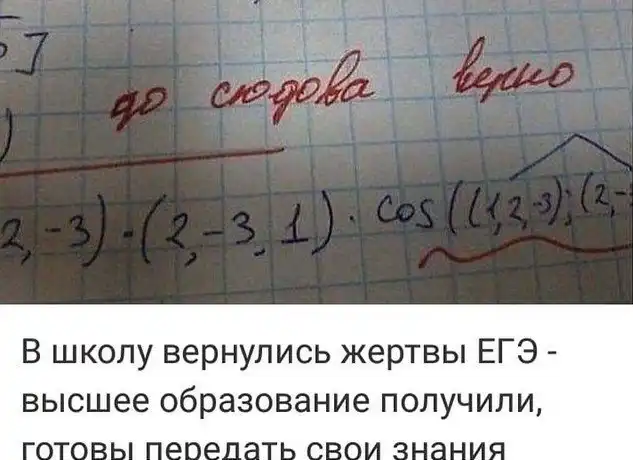 5]
до сюдова верно
)
2, -3) - (2, -3, 1) · cos((1, 2, -3); (2, -
В школу вернулись жертвы ЕГЭ -
высшее образование получили,
готовы передать свои знания